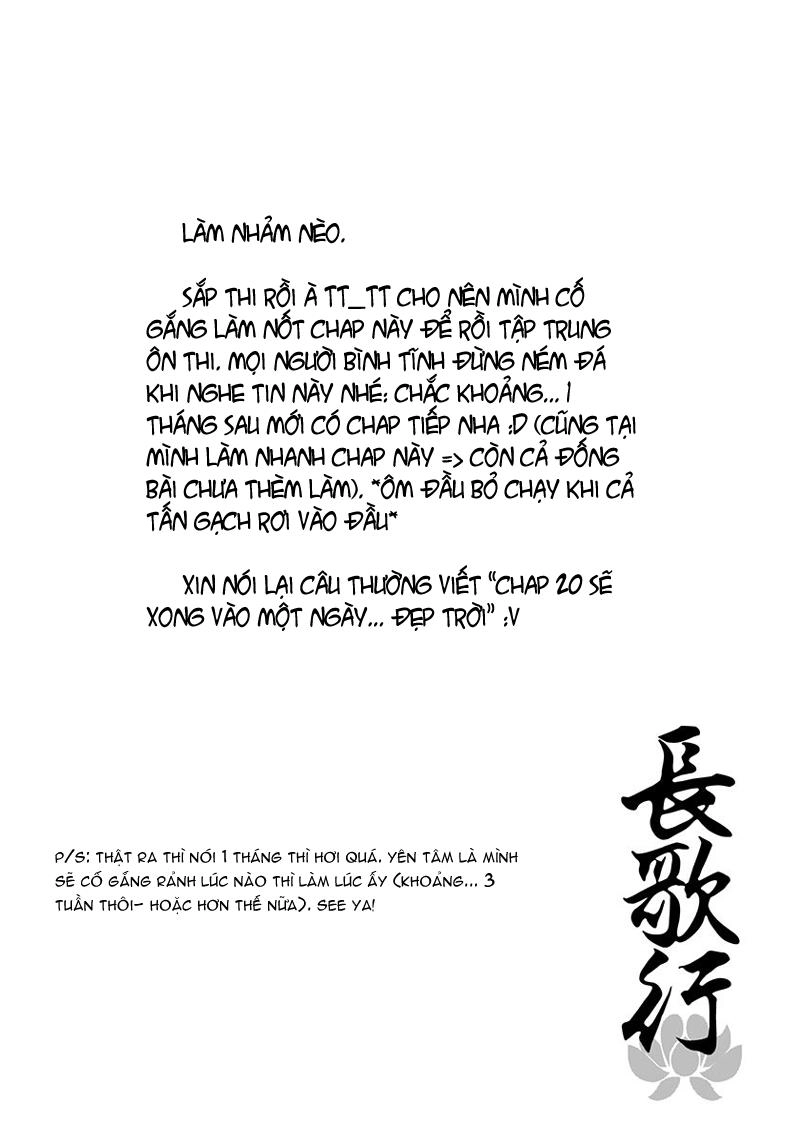 LÀM NHẢM NÈO.
SẮP THI RỒI À TT_TT CHO NÊN MÌNH CỐ
GẮNG LÀM NỐT CHAP NÀY ĐỂ RỒI TẬP TRUNG
ÔN THI. MỌI NGƯỜI BÌNH TĨNH ĐỪNG NÉM ĐÁ
KHI NGHE TIN NÀY NHÉ: CHẮC KHOẢNG... 1
THÁNG SAU MỚI CÓ CHAP TIẾP NHA :D (CŨNG TẠI
MÌNH LÀM NHANH CHAP NÀY => CÒN CẢ ĐỐNG
BÀI CHƯA THÈM LÀM). *ÔM ĐẦU BỎ CHẠY KHI CẢ
TẤN GẠCH RƠI VÀO ĐẦU*
XIN NÓI LẠI CÂU THƯỜNG VIẾT “CHAP 20 SẼ
XONG VÀO MỘT NGÀY... ĐẸP TRỜI” :V
P/S: THẬT RA THÌ NÓI 1 THÁNG THÌ HƠI QUÁ. YÊN TÂM LÀ MÌNH
SẼ CỐ GẮNG RẢNH LÚC NÀO THÌ LÀM LÚC ẤY (KHOẢNG... 3
TUẦN THÔI- HOẶC HƠN THẾ NỮA). SEE YA!
長歌行